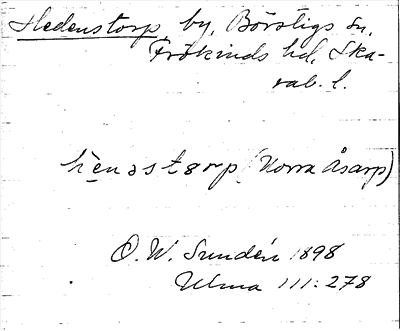 Hedenstorp, by, Börstigs sn,
Frökinds hd, Ska-
rab. l.
henastorp (Norra Åsarp)
O. W. Sundén 1898
Ulma 111:278